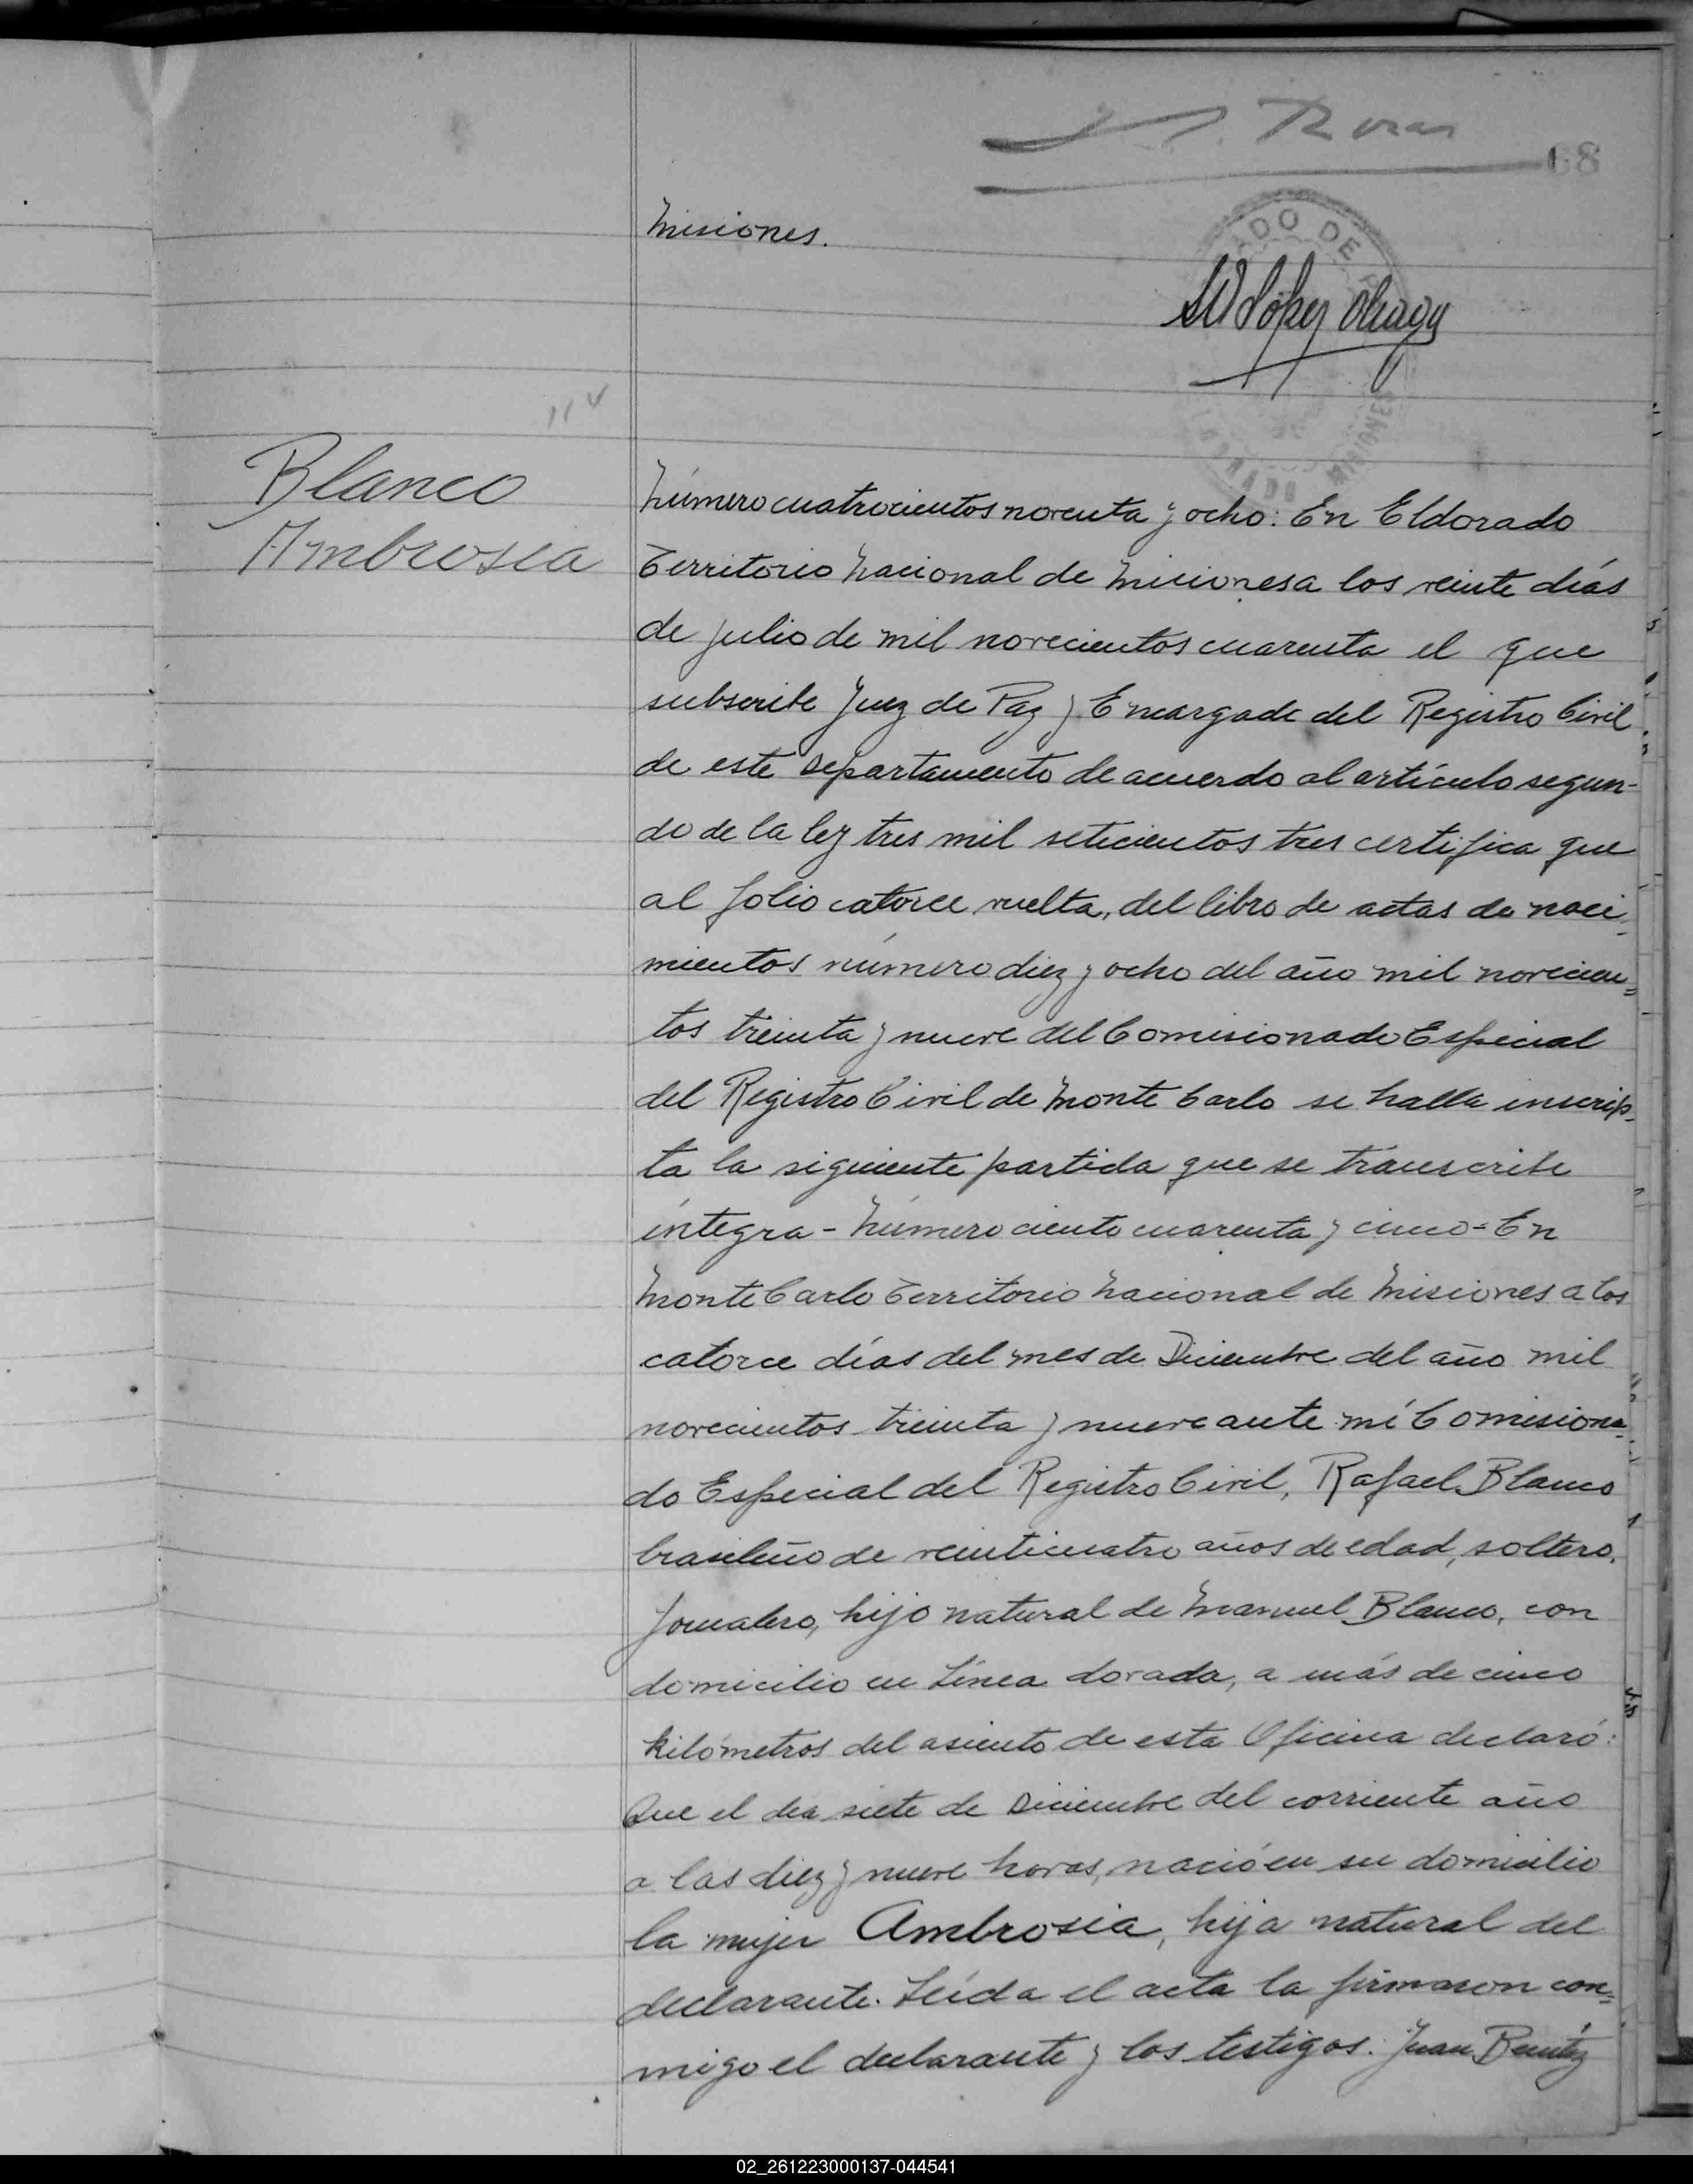 68
Misiones.
114
Blanco
Ambrosia
Número cuatrocientos noventa y ocho: En Eldorado
Territorio Nacional de Misiones a los veinte días
de julio de mil novecientos cuarenta el que
subscribe Juez de Paz y Encargado del Registro Civil
de este Departamento de acuerdo al artículo segun-
do de la ley tres mil seticientos tres certifica que
al folio catorce vuelta, del libro de actas de naci-
mientos número diez y ocho del año mil novecien=
tos treinta y nueve del Comisionado Especial
del Registro Civil de Monte Carlo se halla inscrip-
ta la siguiente partida que se transcribe
íntegra - Número ciento cuarenta y cinco = En
Monte Carlo Territorio Nacional de Misiones a los
catorce días del mes de Diciembre del año mil
novecientos treinta y nueve ante mí Comisiona-
do Especial del Registro Civil, Rafael Blanco
brasileño de veinticuatro años de edad, soltero,
Jornalero, hijo natural de Manuel Blanco, con
domicilio en Línea dorada, a más de cinco
kilómetros del asiento de esta Oficina declaró:
Que el dia siete de Diciembre del corriente año
a las diez y nueve horas, nació en su domicilio
la mujer Ambrosia, hija natural del
declarante. Leída el acta la firmaron con=
migo el declarante y los testigos: Juan Benítez
02_261223000137-044541